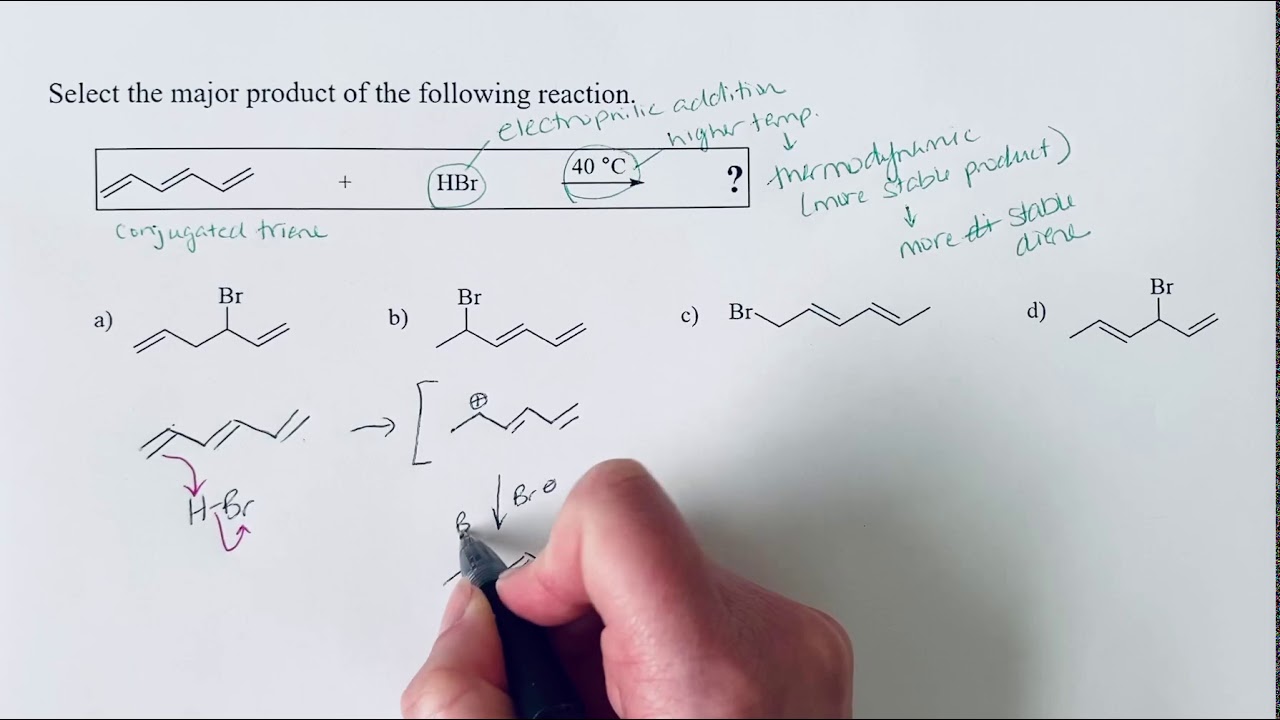 Select the major product of the following reaction.
electrophilic addition
higher temp.
+
HBr
40 °C
?
thermodynamic
(more stable product)
more stable
diene
conjugated triene
a)
Br
b)
Br
c)
Br
d)
Br
⊕
H-Br
Br⊖
B